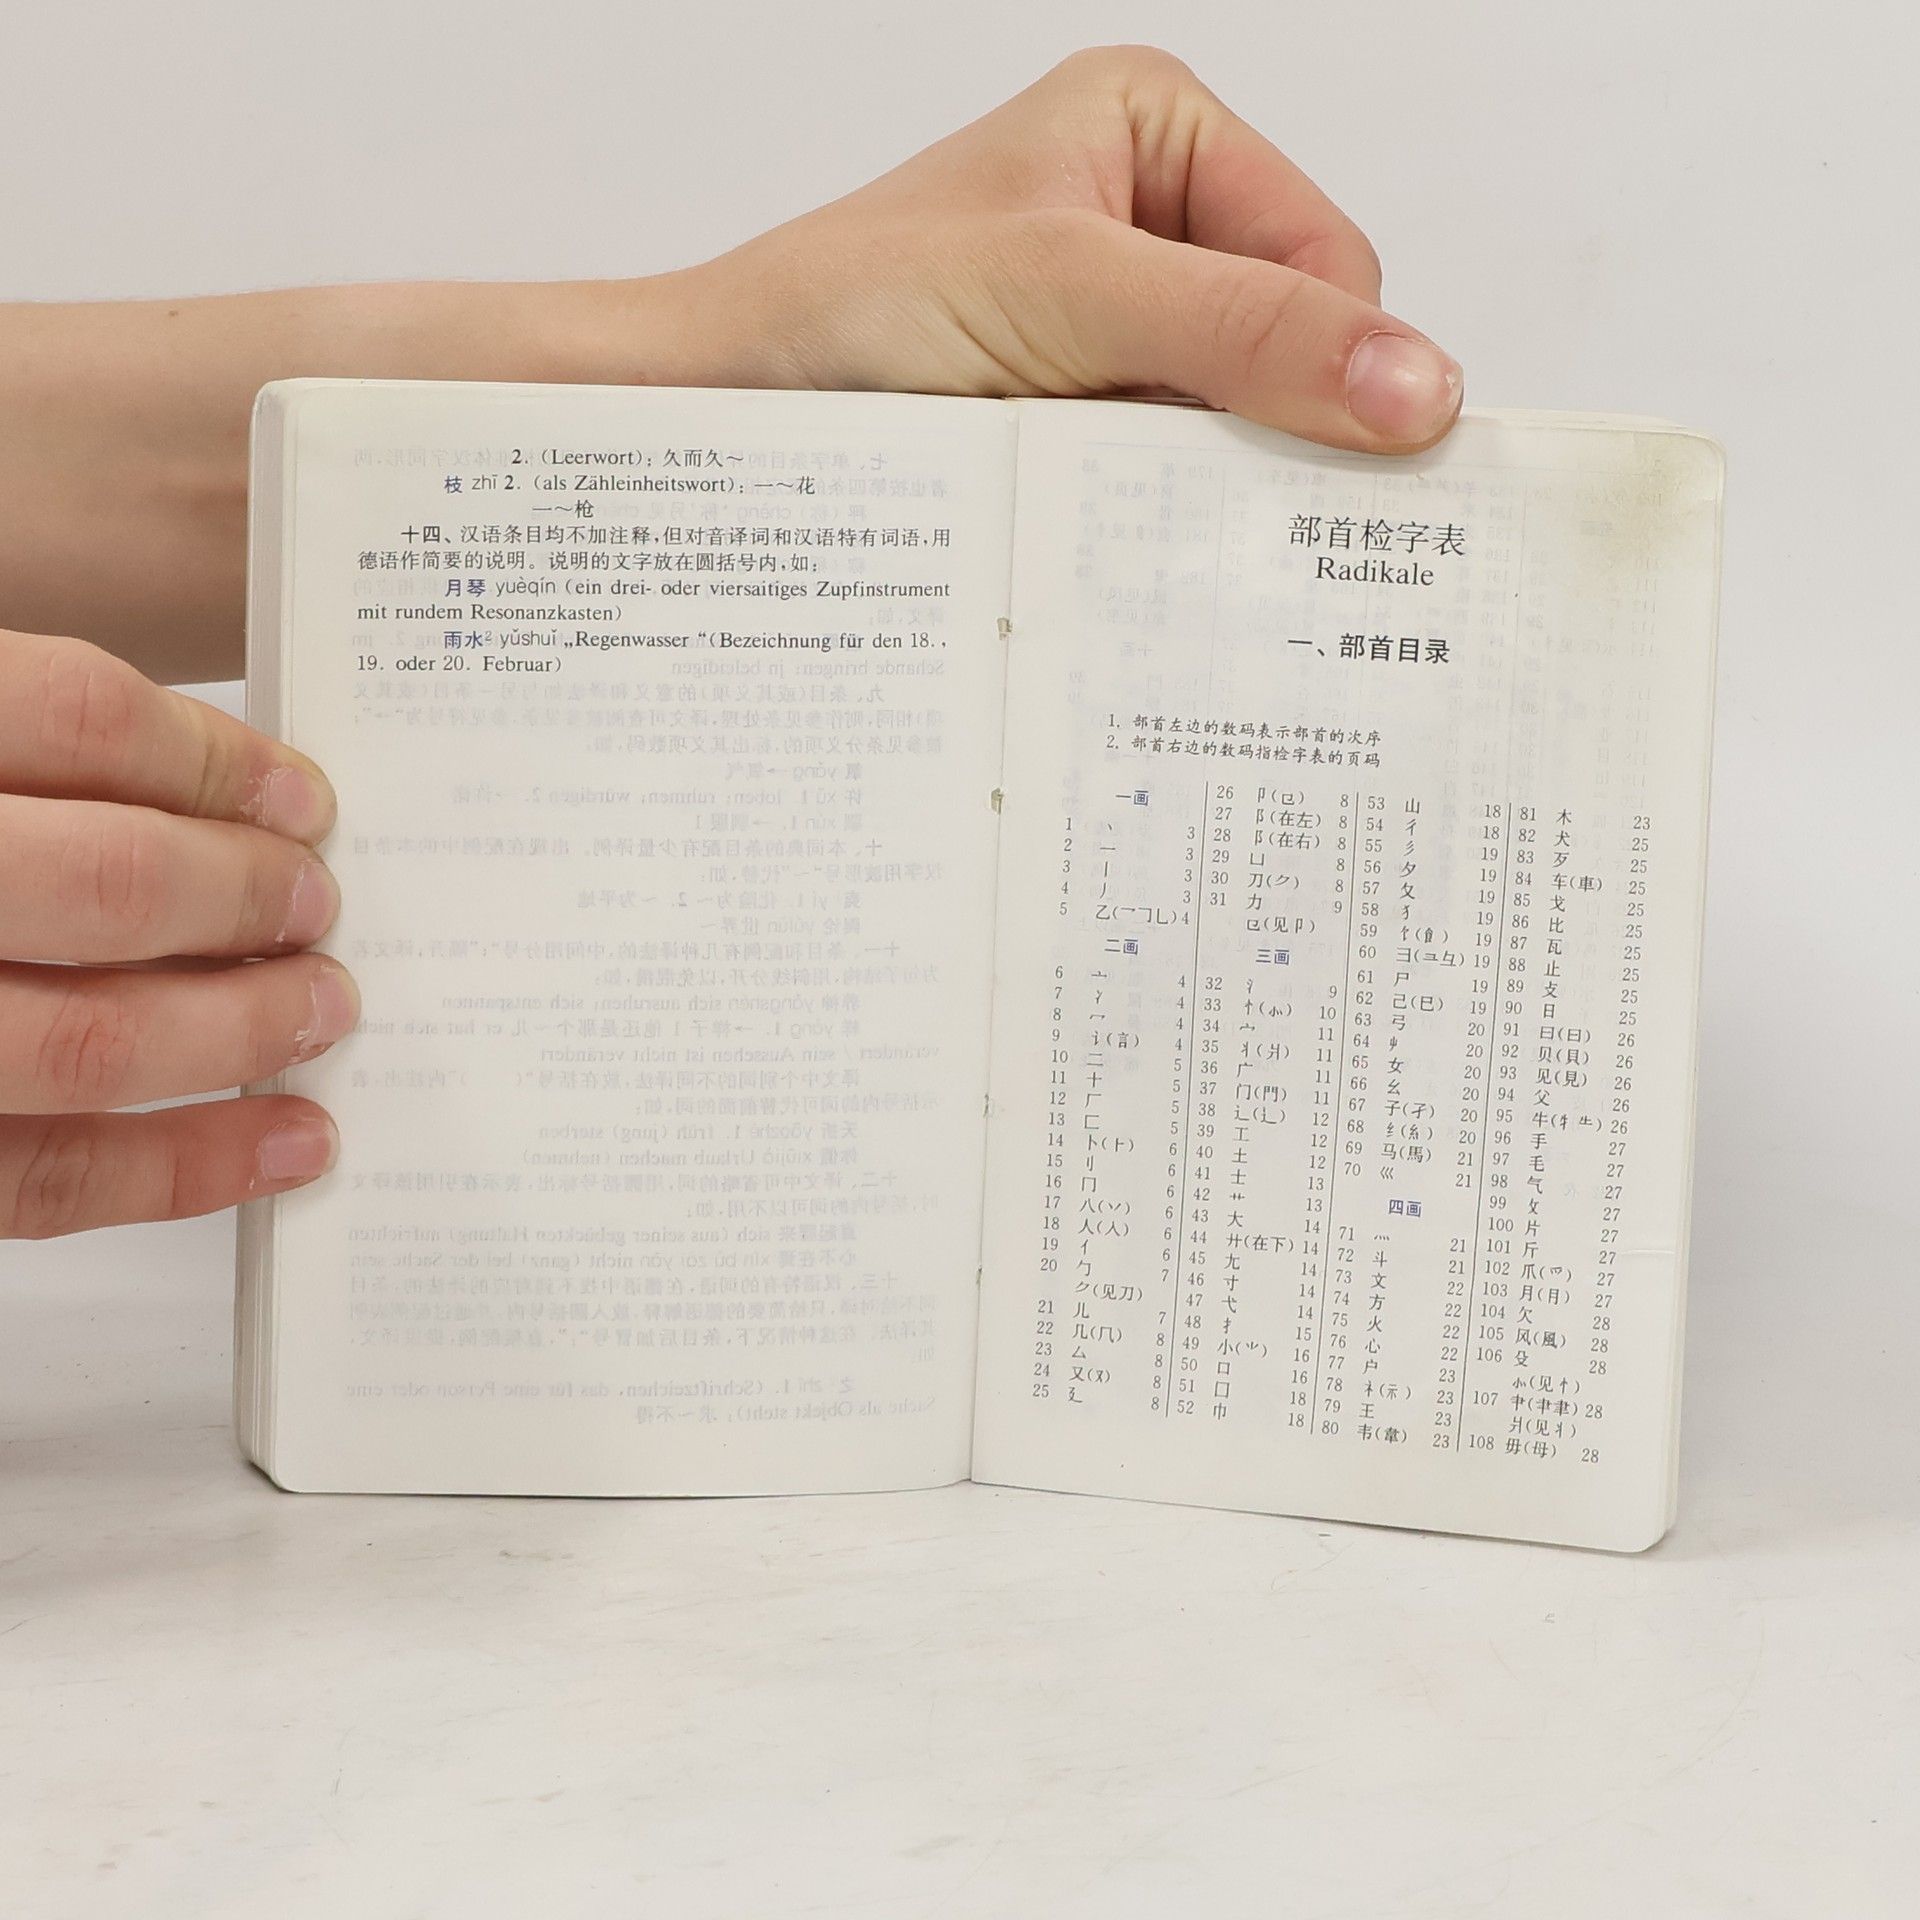 2. (Leerwort); 久而久～
枝 zhī 2. (als Zähleinheitswort): 一～花
一～枪
十四、汉语条目均不加注释,但对音译词和汉语特有词语,用
德语作简要的说明。说明的文字放在圆括号内,如:
月琴 yuèqín (ein drei- oder viersaitiges Zupfinstrument
mit rundem Resonanzkasten)
雨水² yǔshuǐ „Regenwasser “(Bezeichnung für den 18.,
19. oder 20. Februar)
部首检字表
Radikale
一、部首目录
1. 部首左边的数码表示部首的次序
2. 部首右边的数码指检字表的页码
一画
1 丶 3
2 一 3
3 丨 3
4 丿 3
5 乙(乛㇆乚) 4
二画
6 亠 4
7 冫 4
8 冖 4
9 讠(言) 4
10 二 5
11 十 5
12 厂 5
13 匚 5
14 卜(⺊) 6
15 刂 6
16 冂 6
17 八(丷) 6
18 人(入) 6
19 亻 6
20 勹 7
⺈(见刀)
21 儿 7
22 几(⺇) 8
23 厶 8
24 又(ヌ) 8
25 廴 8
26 卩(㔾) 8
27 阝(在左) 8
28 阝(在右) 8
29 凵 8
30 刀(⺈) 8
31 力 9
㔾(见卩)
三画
32 氵 9
33 忄(⺗) 10
34 宀 11
35 丬(爿) 11
36 广 11
37 门(門) 11
38 辶(辶) 12
39 工 12
40 土 12
41 士 13
42 艹 13
43 大 14
44 廾(在下) 14
45 尢 14
46 寸 14
47 弋 14
48 扌 15
49 小(⺌) 16
50 口 16
51 囗 18
52 巾 18
53 山 18
54 彳 18
55 彡 19
56 夕 19
57 夂 19
58 犭 19
59 饣(飠) 19
60 彐(⺕彑) 19
61 尸 19
62 己(巳) 19
63 弓 20
64 屮 20
65 女 20
66 幺 20
67 子(孑) 20
68 纟(糹) 20
69 马(馬) 21
70 巛 21
四画
71 灬 21
72 斗 21
73 文 22
74 方 22
75 火 22
76 心 22
77 户 23
78 礻(示) 23
79 王 23
80 韦(韋) 23
81 木 23
82 犬 25
83 歹 25
84 车(車) 25
85 戈 25
86 比 25
87 瓦 25
88 止 25
89 攴 25
90 日 25
91 曰(曰) 26
92 贝(貝) 26
93 见(見) 26
94 父 26
95 牛(牜⺧) 26
96 手 27
97 毛 27
98 气 27
99 攵 27
100 片 27
101 斤 27
102 爪(爫) 27
103 月(⺝) 27
104 欠 28
105 风(風) 28
106 殳 28
⺗(见忄)
107 肀(聿⺻) 28
爿(见丬)
108 毋(母) 28